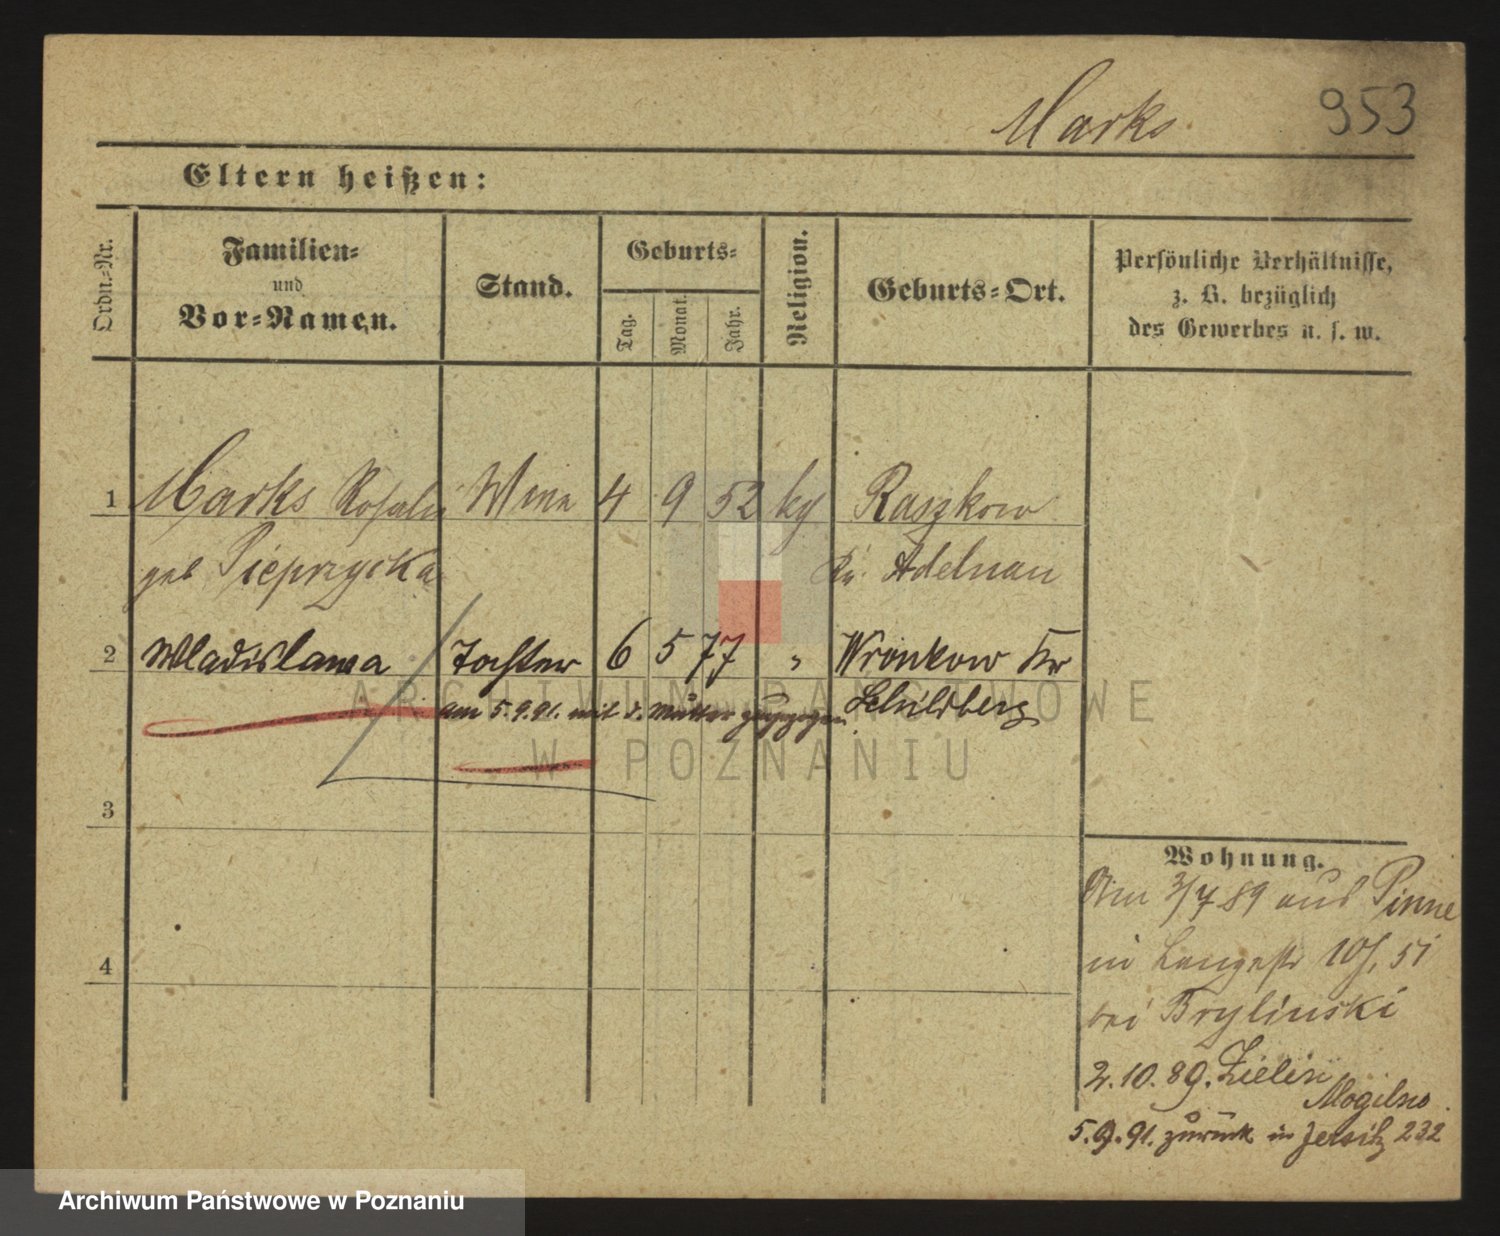 953
Marks
Eltern heißen:
Ordn.-Nr.
Familien-
und
Vor-Namen.
Stand.
Geburts-
Tag.
Monat.
Jahr.
Religion.
Geburts-Ort.
Persönliche Verhältnisse,
z. B. bezüglich
des Gewerbes u. s. w.
1 Marks Rosalie Wwe 4 9 52 kg Raszkow
geb Pieprzycka Kr. Adelnau
2 Wladislawa Tochter 6 5 77 " Wronkow Kr
Schildberg
am 5.9.91. mit d. Mutter zugezogen
3
4
Wohnung.
Am 3/7 89 aus Pinne
in Langestr 10 51
bei Brylinski
2.10.89. Zielin
Mogilno
5.9.91. zurück in Jersitz 232
ARCHIWUM PAŃSTWOWE
W POZNANIU
Archiwum Państwowe w Poznaniu